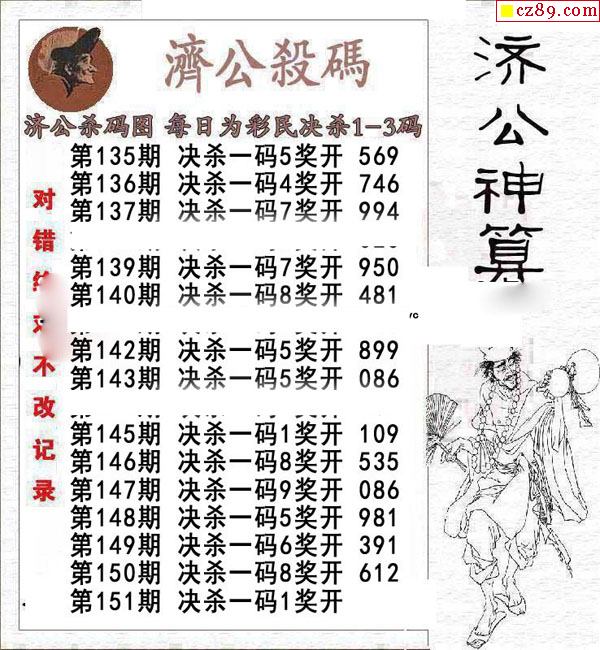 cz89.com
濟公殺碼
济公杀码图 每日为彩民决杀1-3码
第135期 决杀一码5奖开 569
第136期 决杀一码4奖开 746
第137期 决杀一码7奖开 994
第139期 决杀一码7奖开 950
第140期 决杀一码8奖开 481
第142期 决杀一码5奖开 899
第143期 决杀一码5奖开 086
第145期 决杀一码1奖开 109
第146期 决杀一码8奖开 535
第147期 决杀一码9奖开 086
第148期 决杀一码5奖开 981
第149期 决杀一码6奖开 391
第150期 决杀一码8奖开 612
第151期 决杀一码1奖开
对错
不改记录
济公神算